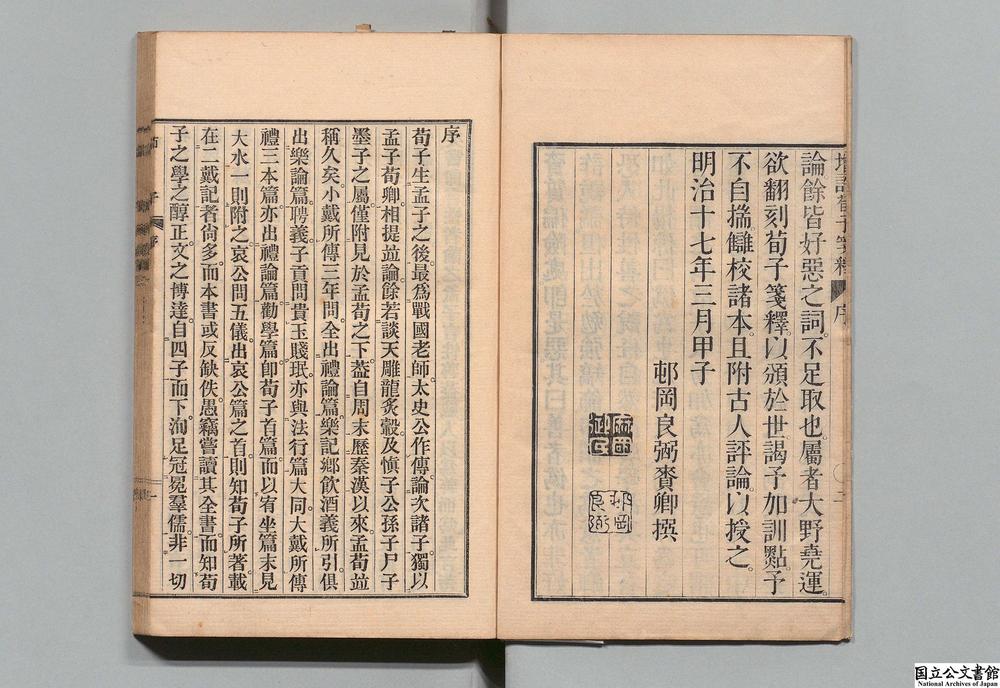 增評荀子箋釋 序 二
論餘皆好惡之詞。不足取也。屬者大野堯運。
欲翻刻荀子箋釋。以頒於世。謁予加訓點。予
不自揣。讎校諸本。且附古人評論。以授之。
明治十七年三月甲子
邨岡良弼賚卿撰
邨岡
良弼
序
荀子生孟子之後。最爲戰國老師。太史公作傳。論次諸子。獨以
孟子荀卿。相提並論。餘若談天雕龍炙轂。及愼子公孫子尸子
墨子之屬。僅附見於孟荀之下。葢自周末歷秦漢以來。孟荀並
稱久矣。小戴所傳三年問。全出禮論篇。樂記鄉飲酒義所引。俱
出樂論篇。聘義子貢問貴玉賤珉。亦與法行篇大同。大戴所傳
禮三本篇。亦出禮論篇。勸學篇。卽荀子首篇。而以宥坐篇末見
大水一則附之。哀公問五儀。出哀公篇之首。則知荀子所著。載
在二戴記者尙多。而本書或反缺佚。愚竊嘗讀其全書。而知荀
子之學之醇正。文之博達。自四子而下。洵足冠冕羣儒。非一切
荀子 序 一
国立公文書館
National Archives of Japan